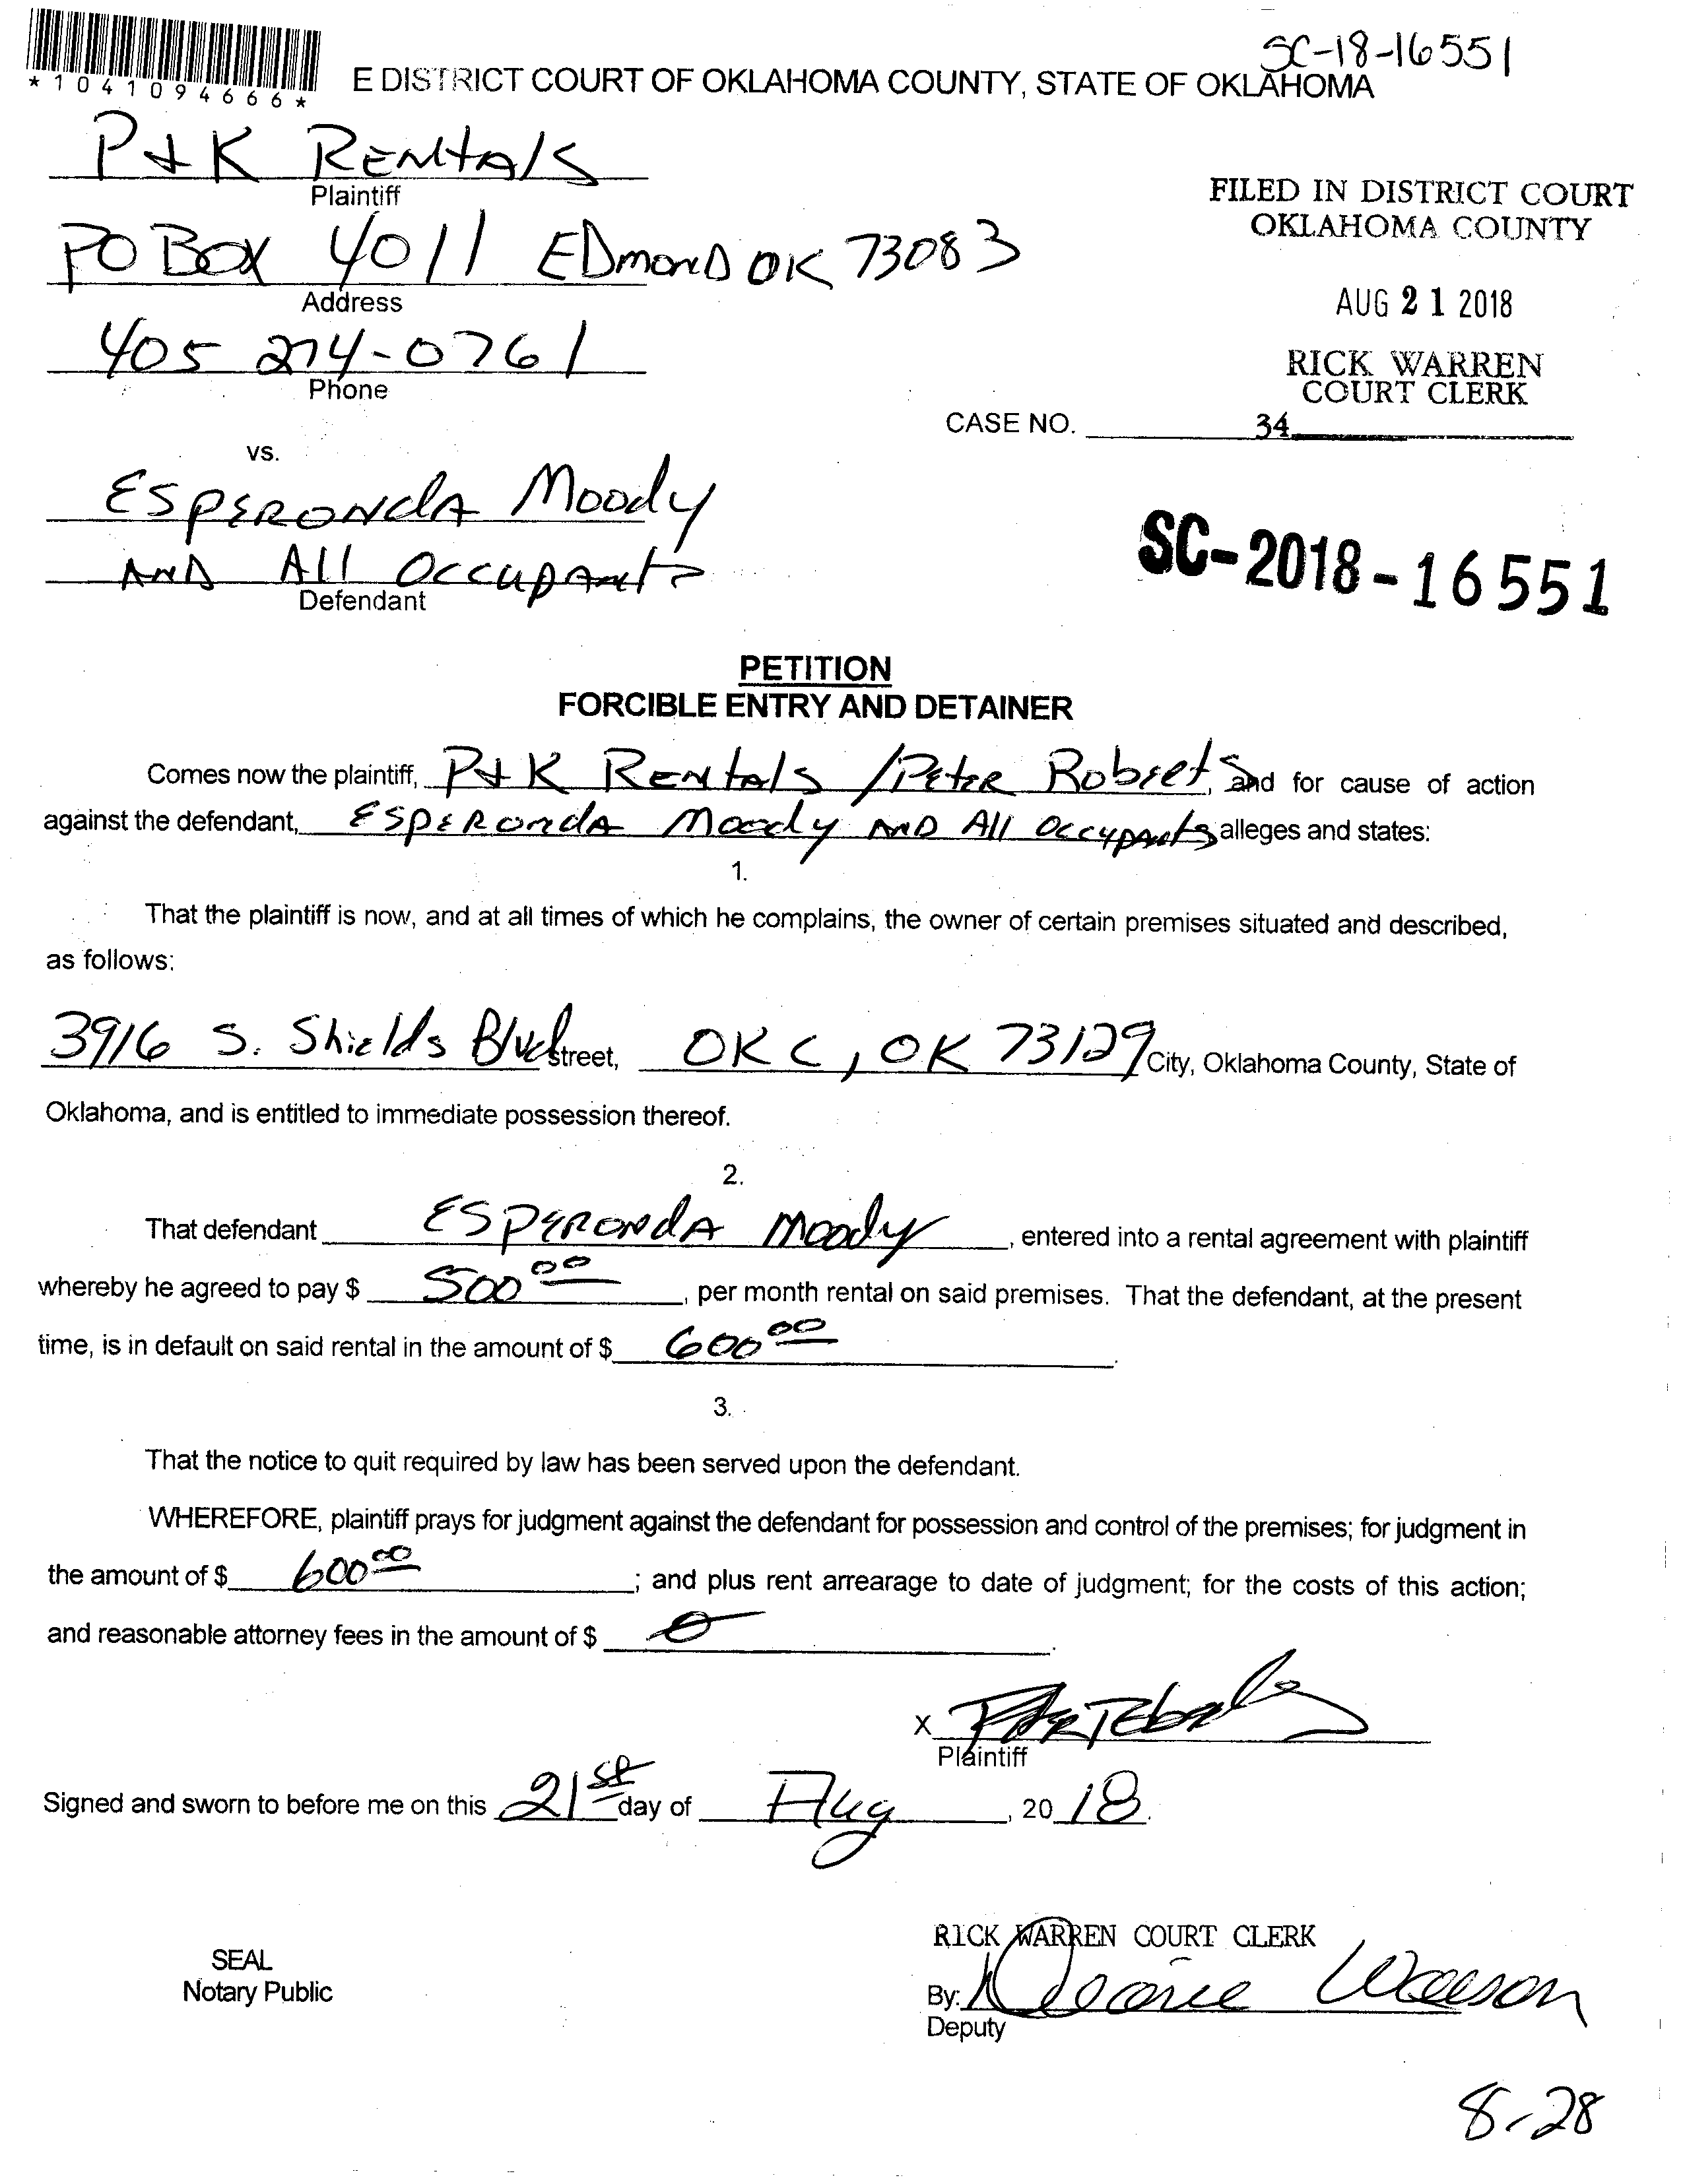 SC-18-16551
*1041094666*
E DISTRICT COURT OF OKLAHOMA COUNTY, STATE OF OKLAHOMA
P+K RENTALS
Plaintiff
PO BOX 4011 EDMOND OK 73083
Address
405 274-0761
Phone
FILED IN DISTRICT COURT
OKLAHOMA COUNTY
AUG 21 2018
RICK WARREN
COURT CLERK
CASE NO. 34
vs.
ESPERONDA Moody
AND All Occupants
Defendant
SC-2018-16551
PETITION
FORCIBLE ENTRY AND DETAINER
Comes now the plaintiff, P+K Rentals / Peter Roberts, and for cause of action
against the defendant, ESPERONDA Moody AND All Occupants alleges and states:
1.
That the plaintiff is now, and at all times of which he complains, the owner of certain premises situated and described,
as follows:
3916 S. Shields Blvd Street, OKC, OK 73129 City, Oklahoma County, State of
Oklahoma, and is entitled to immediate possession thereof.
2.
That defendant ESPERONDA Moody, entered into a rental agreement with plaintiff
whereby he agreed to pay $ 500 00, per month rental on said premises. That the defendant, at the present
time, is in default on said rental in the amount of $ 600 00.
3.
That the notice to quit required by law has been served upon the defendant.
WHEREFORE, plaintiff prays for judgment against the defendant for possession and control of the premises; for judgment in
the amount of $ 600 00; and plus rent arrearage to date of judgment; for the costs of this action;
and reasonable attorney fees in the amount of $ 0.
X
Plaintiff
Signed and sworn to before me on this 21st day of Aug, 2018.
SEAL
Notary Public
RICK WARREN COURT CLERK
By:
Deputy
8-28